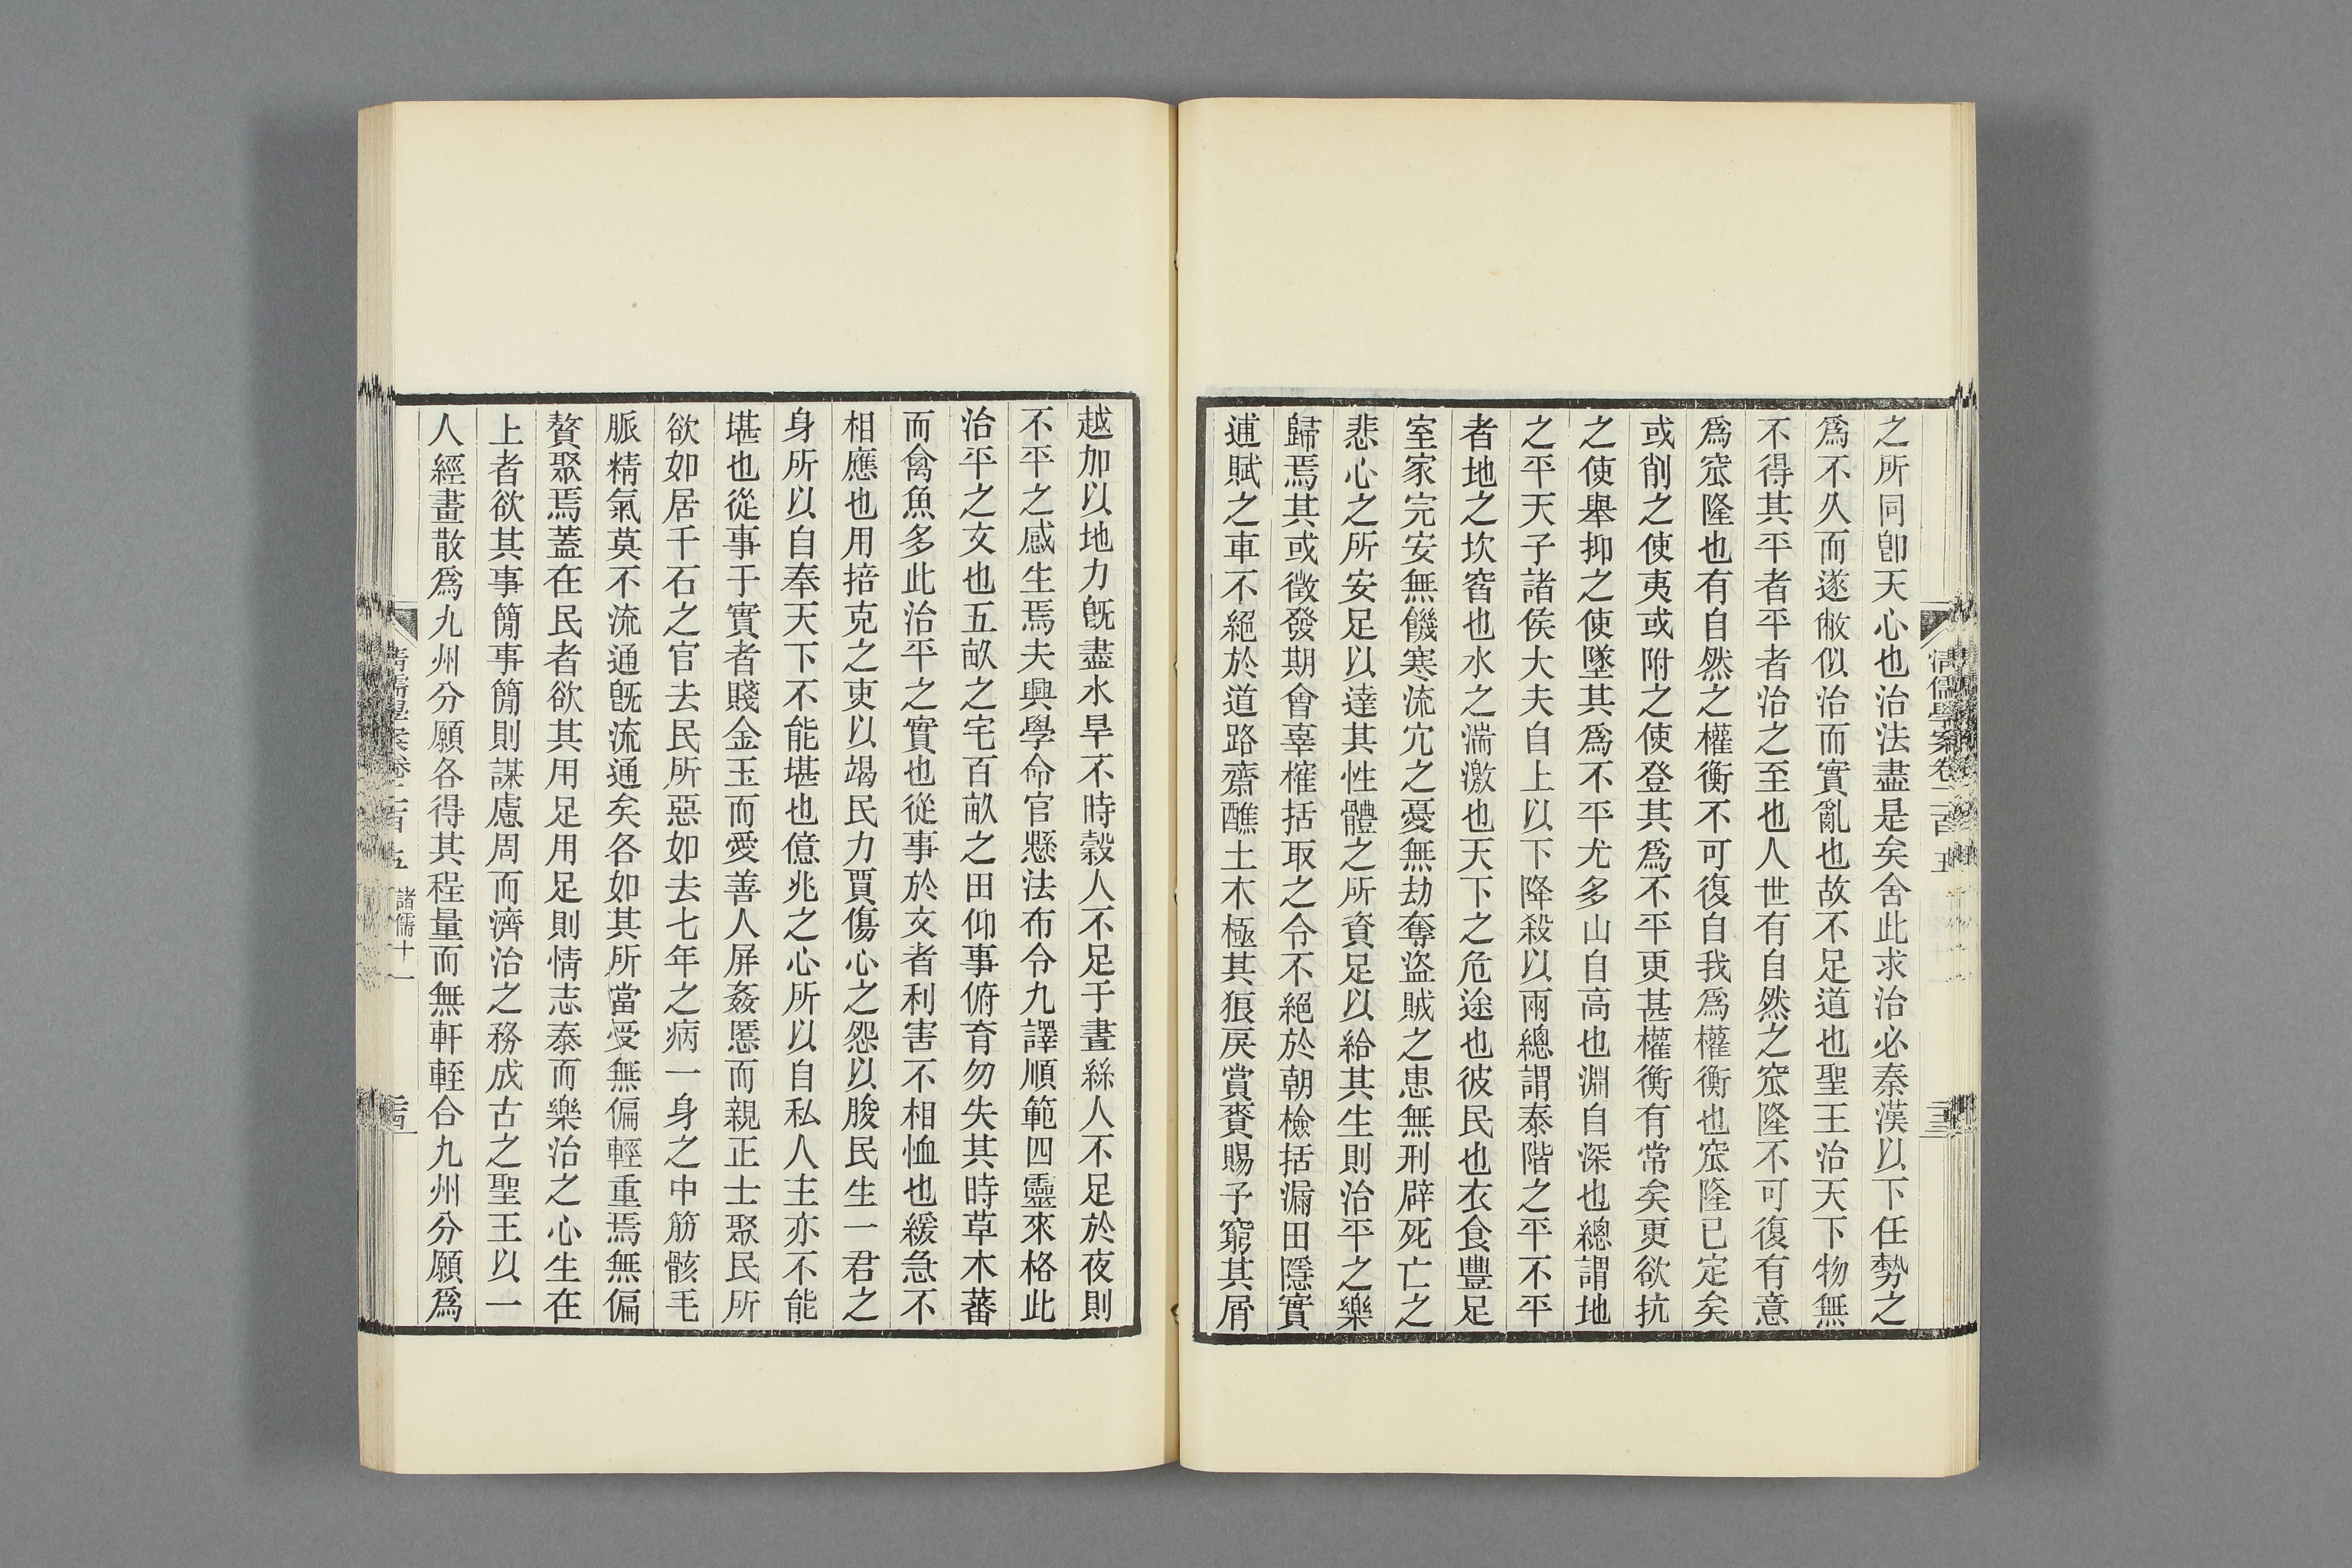 之所同卽天心也治法盡是矣舍此求治必秦漢以下任勢之
爲不久而遂敝似治而實亂也故不足道也聖王治天下物無
不得其平者平者治之至也人世有自然之窊隆不可復有意
爲窊隆也有自然之權衡不可復自我爲權衡也窊隆已定矣
或削之使夷或附之使登其爲不平更甚權衡有常矣更欲抗
之使舉抑之使墜其爲不平尤多山自高也淵自深也總謂地
之平天子諸侯大夫自上以下降殺以兩總謂泰階之平不平
者地之坎窞也水之湍激也天下之危途也彼民也衣食豐足
室家完安無饑寒流宂之憂無劫奪盜賊之患無刑辟死亡之
悲心之所安足以達其性體之所資足以給其生則治平之樂
歸焉其或徵發期會辜榷括取之令不絕於朝檢括漏田隱實
逋賦之車不絕於道路齋醮土木極其狠戾賞賚賜予窮其屑
清儒學案卷二百五
越加以地力旣盡水旱不時穀人不足于晝絲人不足於夜則
不平之感生焉夫興學命官懸法布令九譯順範四靈來格此
治平之文也五畝之宅百畝之田仰事俯育勿失其時草木蕃
而禽魚多此治平之實也從事於文者利害不相恤也緩急不
相應也用掊克之吏以竭民力賈傷心之怨以朘民生一君之
身所以自奉天下不能堪也億兆之心所以自私人主亦不能
堪也從事于實者賤金玉而愛善人屏姦慝而親正士聚民所
欲如居千石之官去民所惡如去七年之病一身之中筋骸毛
脈精氣莫不流通旣流通矣各如其所當受無偏輕重焉無偏
贅聚焉蓋在民者欲其用足用足則情志泰而樂治之心生在
上者欲其事簡事簡則謀慮周而濟治之務成古之聖王以一
人經畫散爲九州分願各得其程量而無軒輊合九州分願爲
清儒學案卷二百五 諸儒十一